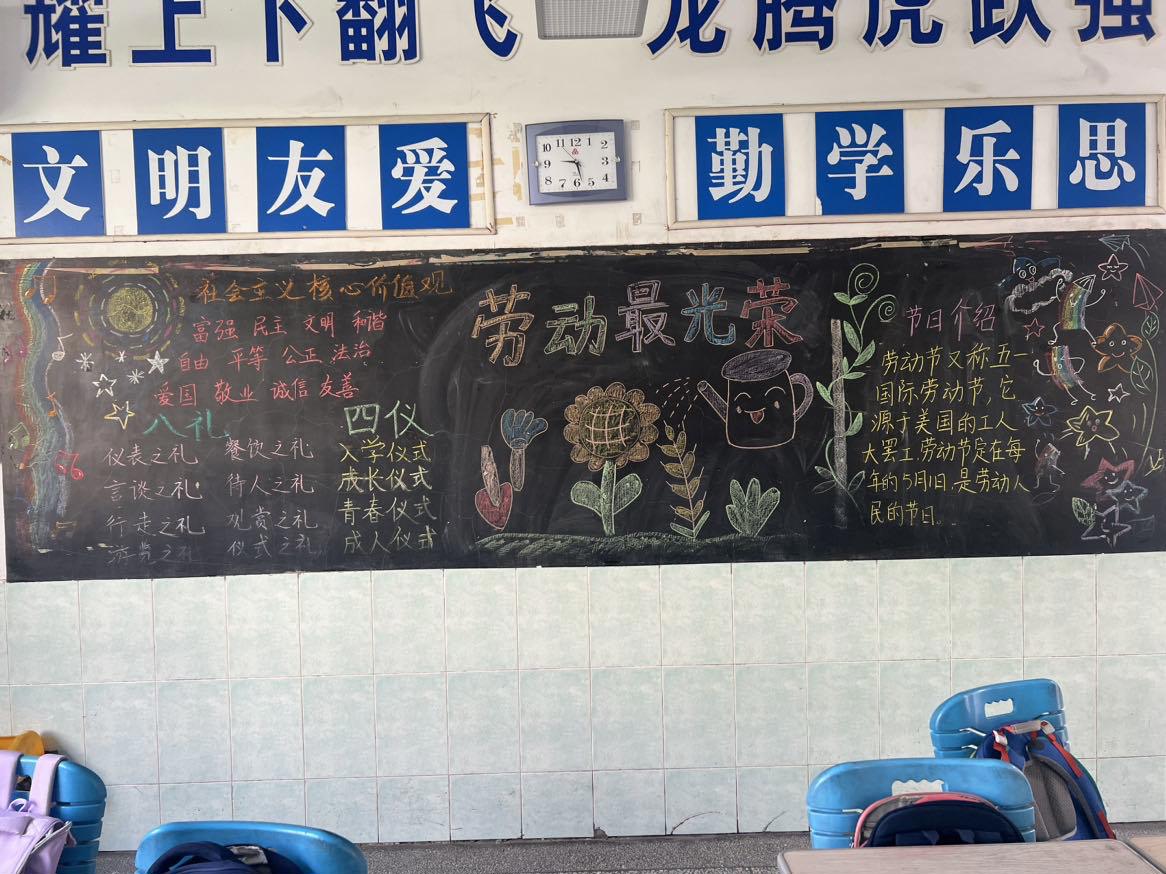 耀上下翻飞
龙腾虎跃强
文明友爱
勤学乐思
10 11 12 1 2 3 4 5 6 7 8 9
社会主义核心价值观
富强 民主 文明 和谐
自由 平等 公正 法治
爱国 敬业 诚信 友善
八礼
仪表之礼 餐饮之礼
言谈之礼 待人之礼
行走之礼 观赏之礼
游赏之礼 仪式之礼
四仪
入学仪式
成长仪式
青春仪式
成人仪式
劳动最光荣
节日介绍
劳动节又称五一
国际劳动节,它
源于美国的工人
大罢工.劳动节定在每
年的5月1日.是劳动人
民的节日。